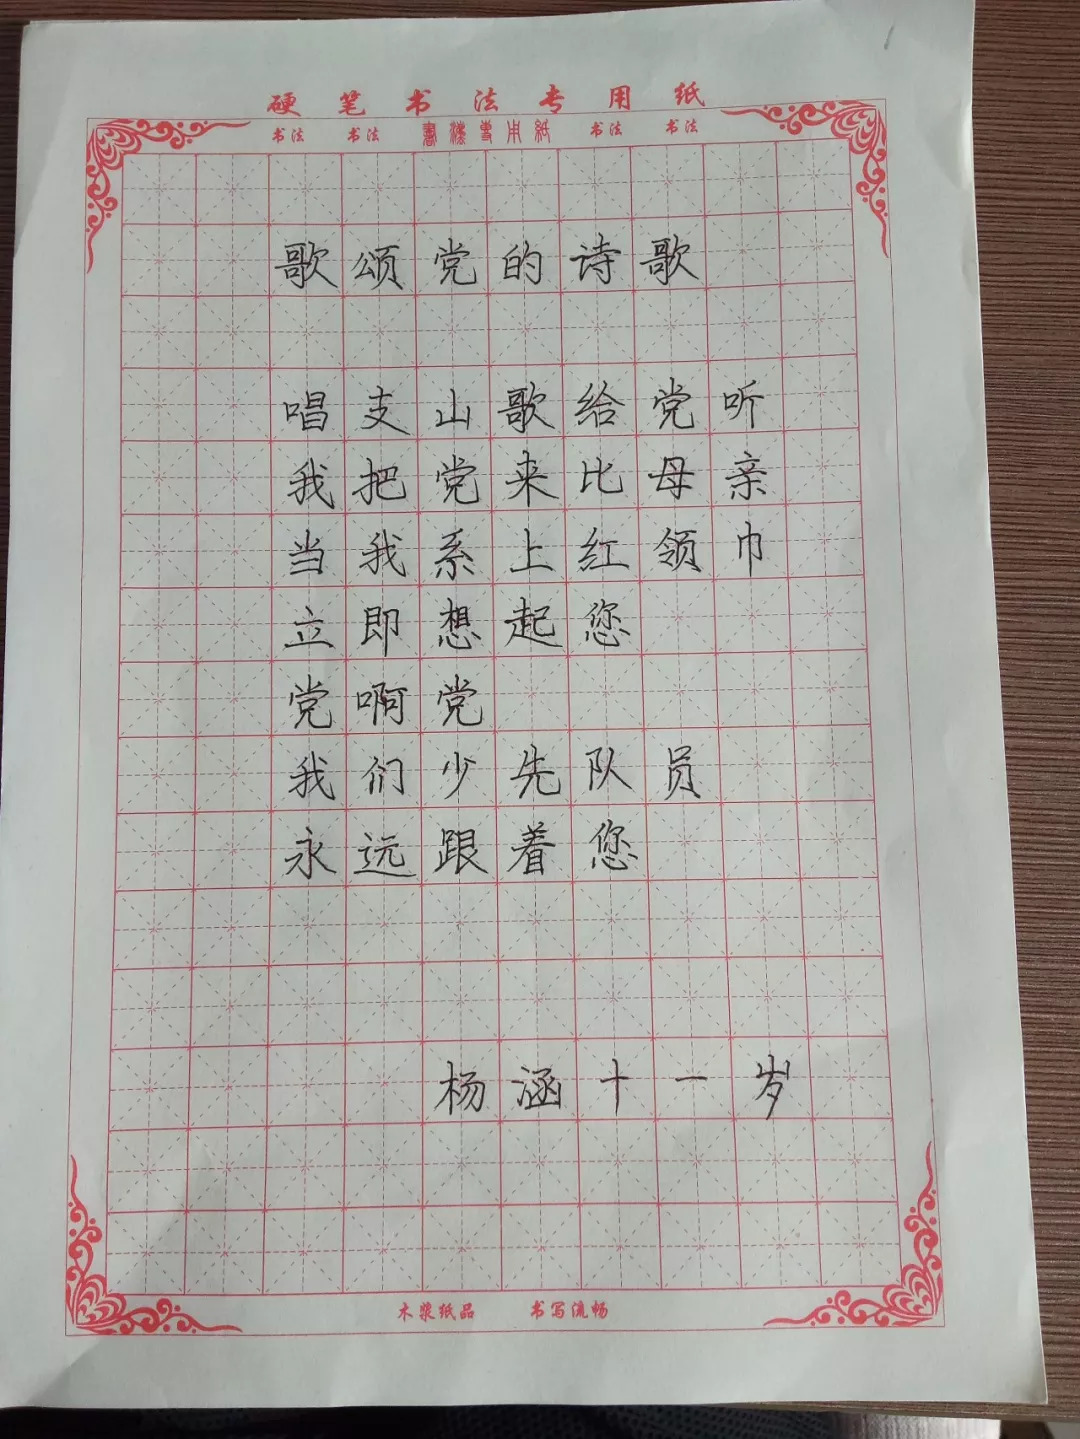 硬笔书法专用纸
书法 书法 書法專用紙 书法 书法
歌颂党的诗歌
唱支山歌给党听
我把党来比母亲
当我系上红领巾
立即想起您
党啊党
我们少先队员
永远跟着您
杨涵十一岁
木浆纸品 书写流畅